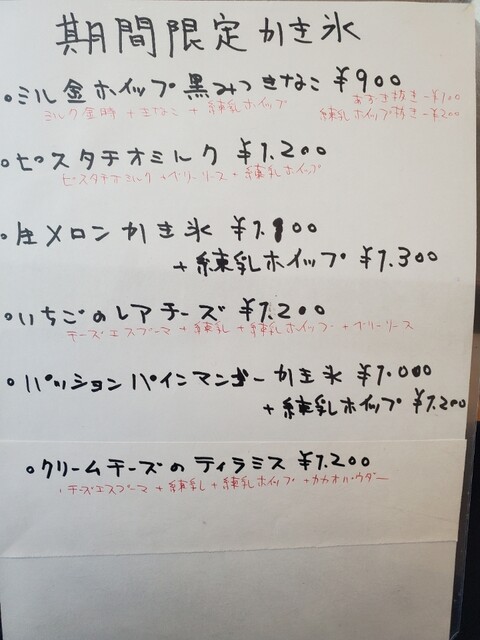 期間限定かき氷
・ミル金ホイップ黒みつきなこ ¥900
ミルク金時+きなこ+練乳ホイップ
あずき抜き-¥100
練乳ホイップ抜き-¥200
・ピスタチオミルク ¥1.200
ピスタチオミルク+ベリーソース+練乳ホイップ
・生メロンかき氷 ¥1.100
+練乳ホイップ ¥1.300
・いちごのレアチーズ ¥1.200
チーズエスプーマ+練乳+練乳ホイップ+ベリーソース
・パッションパインマンゴーかき氷 ¥1.000
+練乳ホイップ ¥1.200
・クリームチーズのティラミス ¥1.200
・チーズエスプーマ+練乳+練乳ホイップ+カカオパウダー